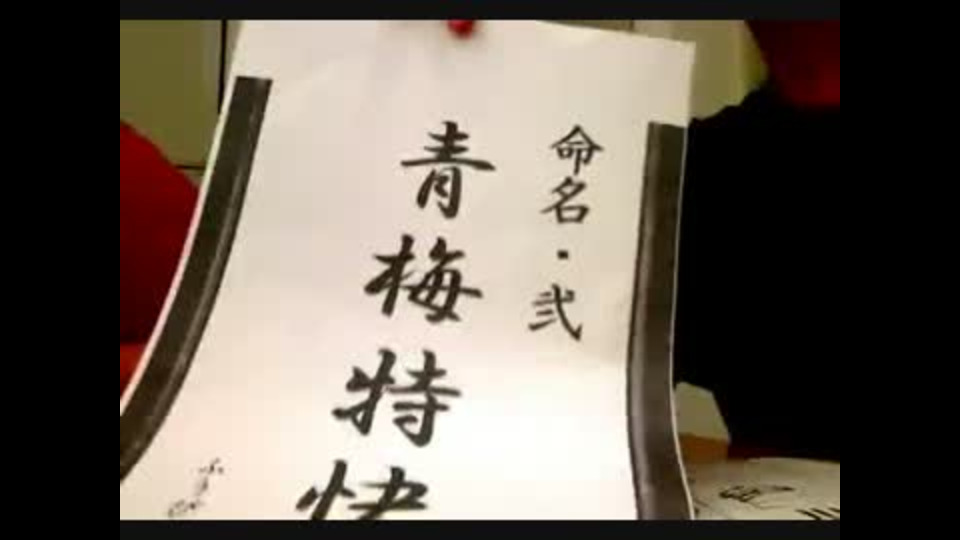 命名・弐
青梅特快